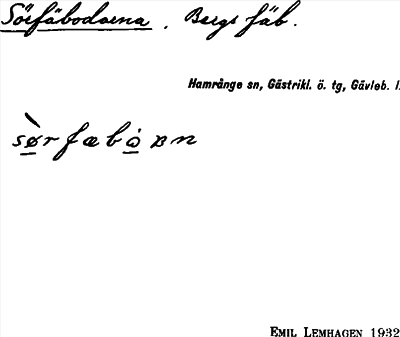 Sörfäbodarna. Bergs fäb.
Hamrånge sn, Gästrikl. ö. tg, Gävleb. l.
sø̀rfæbȯʀn
EMIL LEMHAGEN 1932